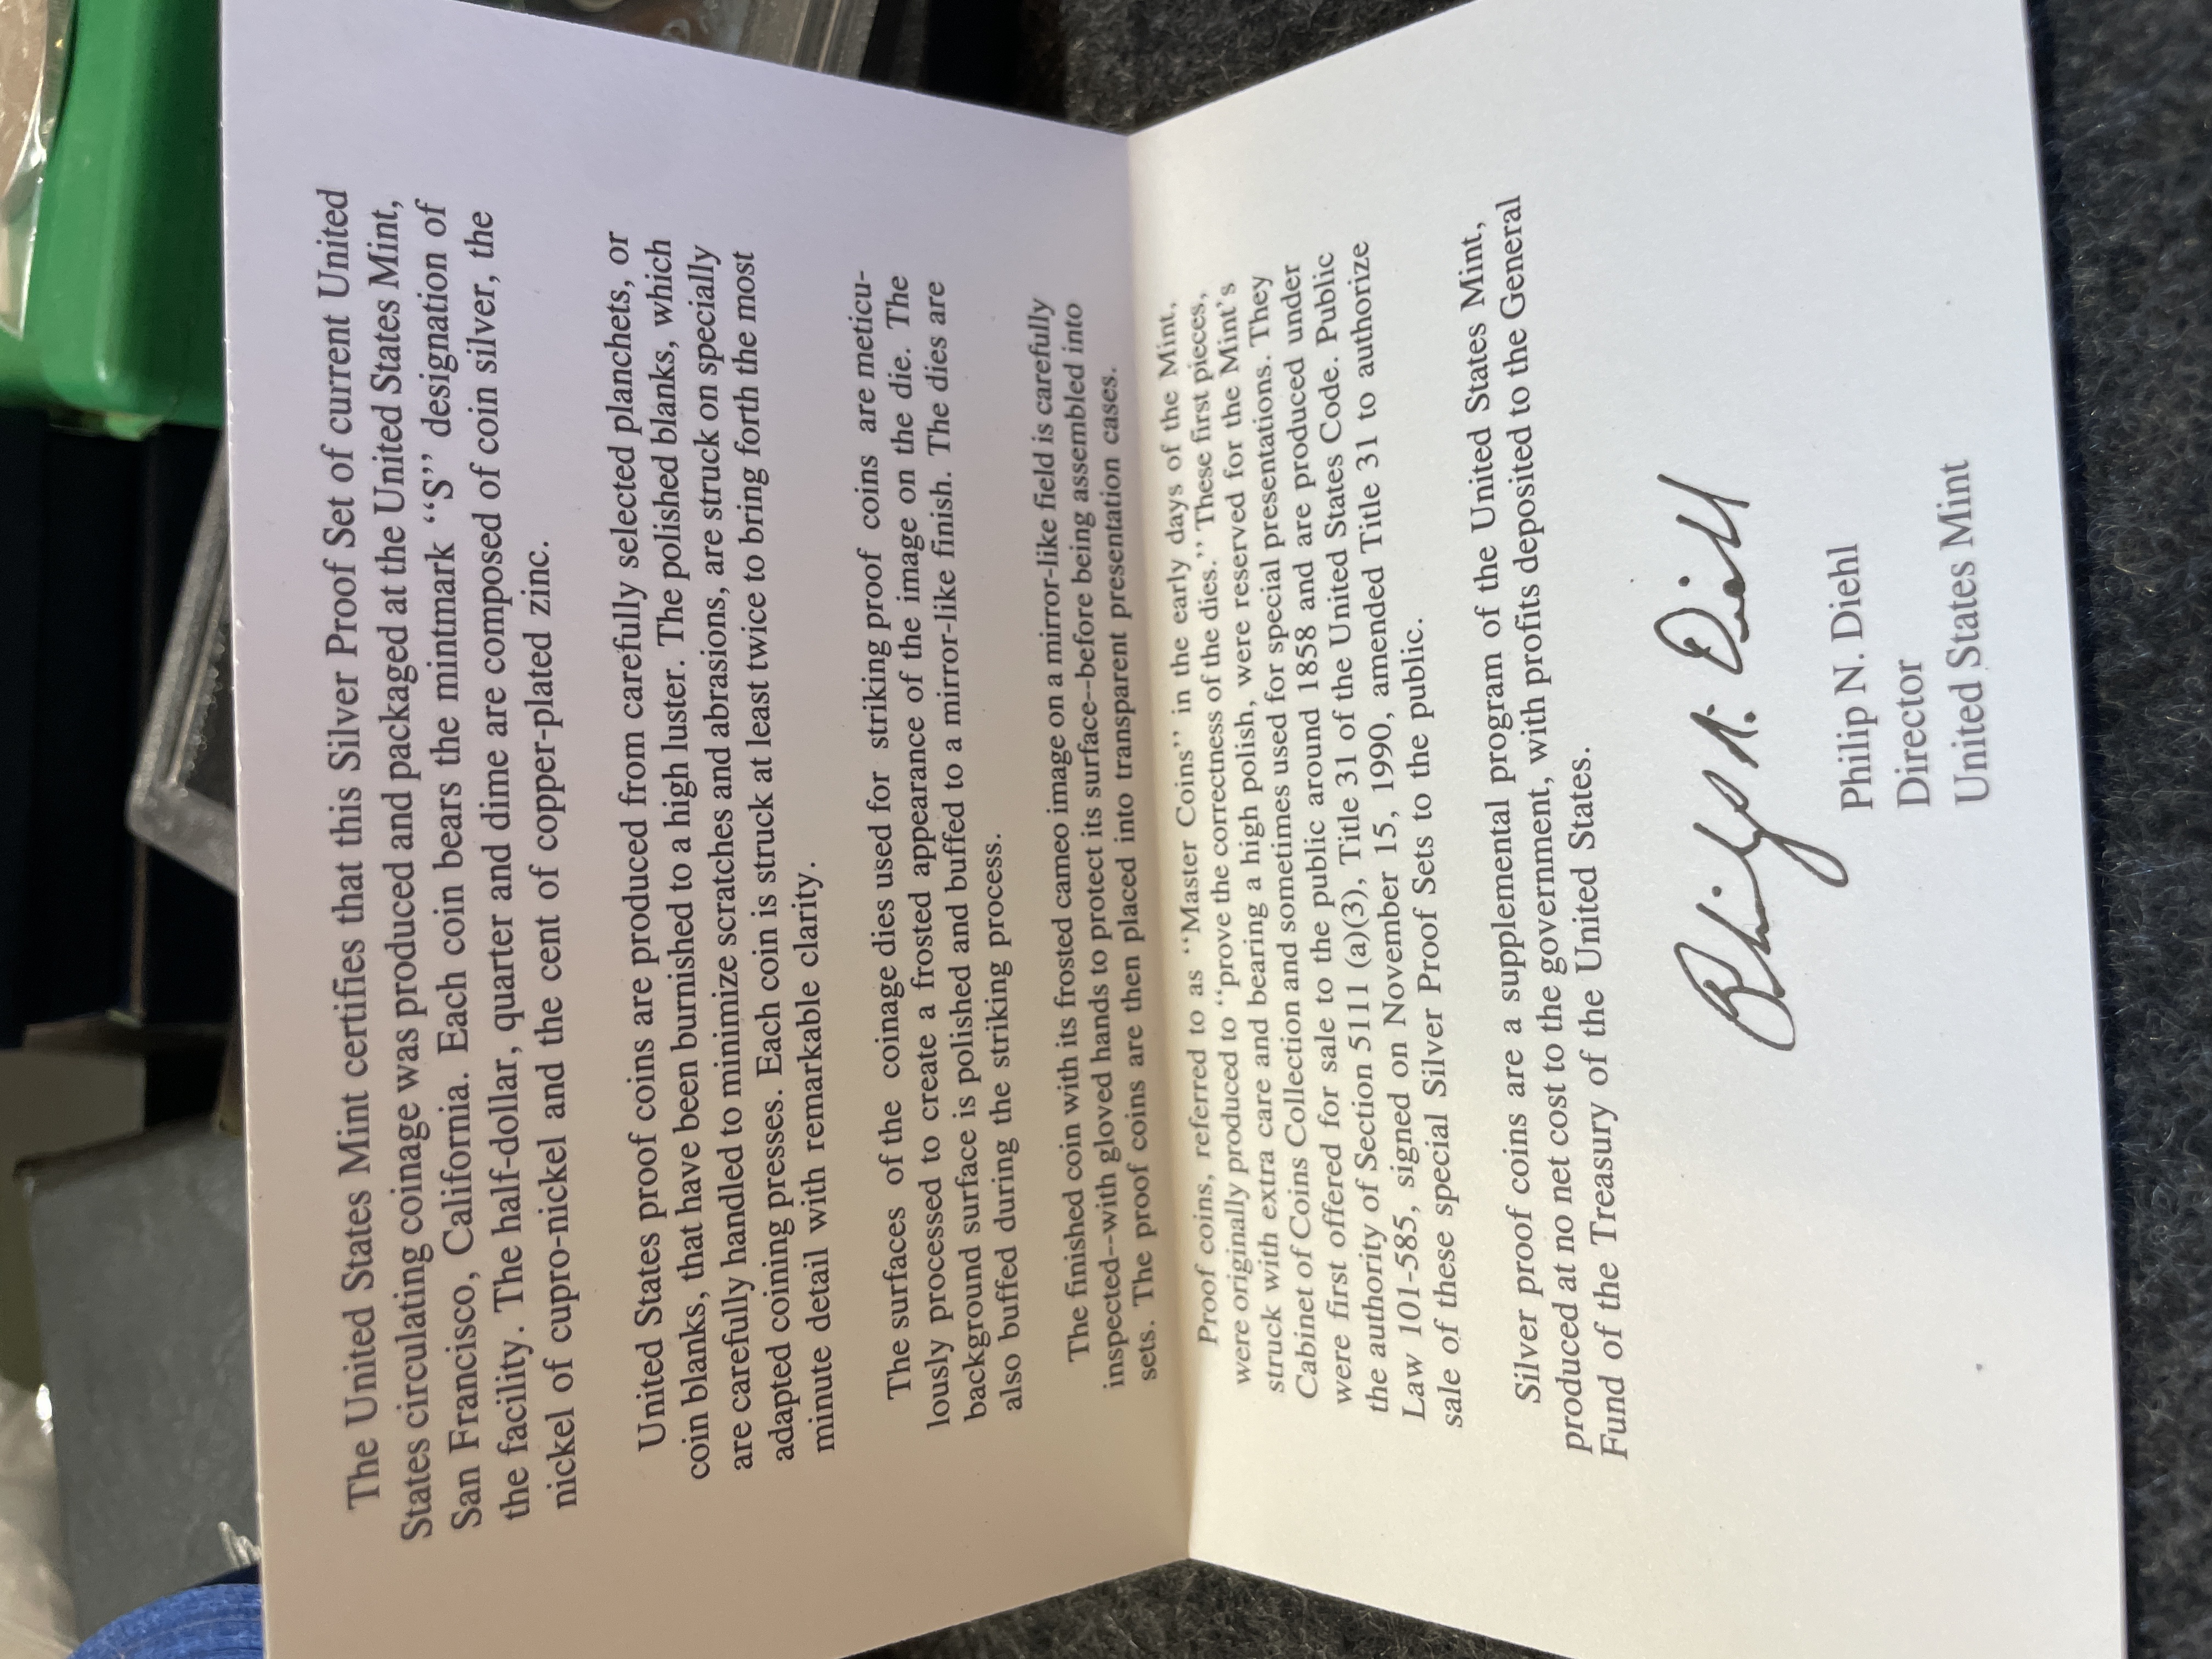 The United States Mint certifies that this Silver Proof Set of current United
States circulating coinage was produced and packaged at the United States Mint,
San Francisco, California. Each coin bears the mintmark “S” designation of
the facility. The half-dollar, quarter and dime are composed of coin silver, the
nickel of cupro-nickel and the cent of copper-plated zinc.
United States proof coins are produced from carefully selected planchets, or
coin blanks, that have been burnished to a high luster. The polished blanks, which
are carefully handled to minimize scratches and abrasions, are struck on specially
adapted coining presses. Each coin is struck at least twice to bring forth the most
minute detail with remarkable clarity.
The surfaces of the coinage dies used for striking proof coins are meticu-
lously processed to create a frosted appearance of the image on the die. The
background surface is polished and buffed to a mirror-like finish. The dies are
also buffed during the striking process.
The finished coin with its frosted cameo image on a mirror-like field is carefully
inspected--with gloved hands to protect its surface--before being assembled into
sets. The proof coins are then placed into transparent presentation cases.
Proof coins, referred to as “Master Coins” in the early days of the Mint,
were originally produced to “prove the correctness of the dies.” These first pieces,
struck with extra care and bearing a high polish, were reserved for the Mint's
Cabinet of Coins Collection and sometimes used for special presentations. They
were first offered for sale to the public around 1858 and are produced under
the authority of Section 5111 (a)(3), Title 31 of the United States Code. Public
Law 101-585, signed on November 15, 1990, amended Title 31 to authorize
sale of these special Silver Proof Sets to the public.
Silver proof coins are a supplemental program of the United States Mint,
produced at no net cost to the government, with profits deposited to the General
Fund of the Treasury of the United States.
Philip N. Diehl
Philip N. Diehl
Director
United States Mint